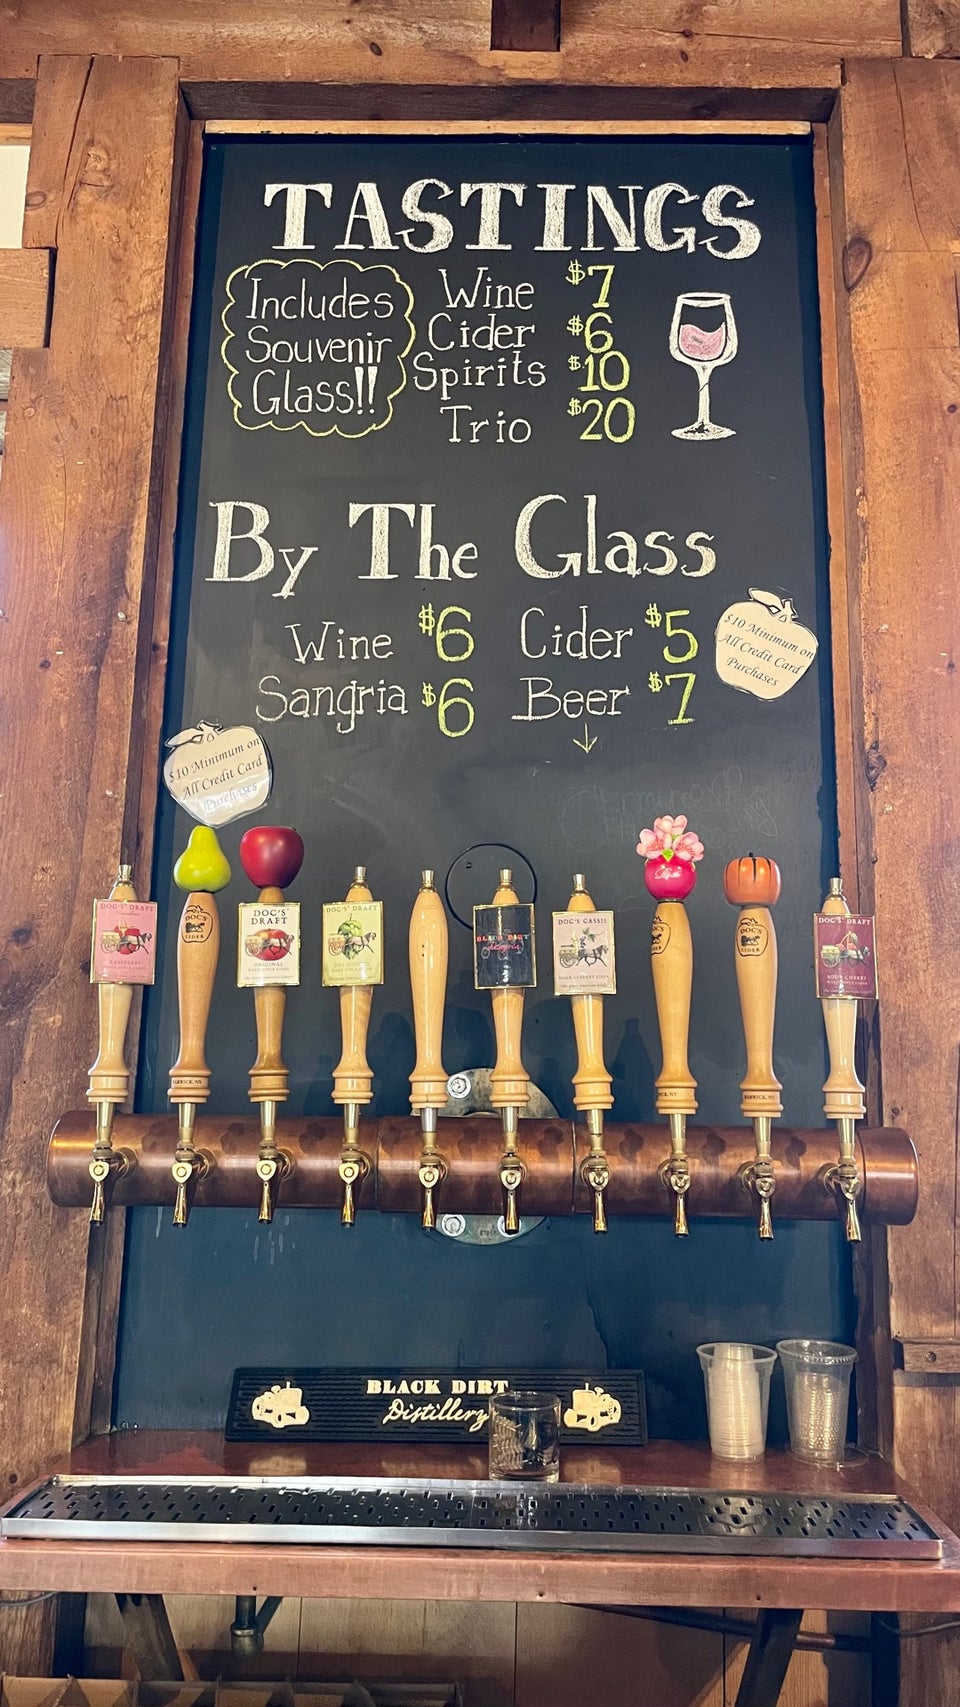 TASTINGS
Includes
Souvenir
Glass!!
Wine $7
Cider $6
Spirits $10
Trio $20
By The Glass
Wine $6
Cider $5
Sangria $6
Beer $7
$10 Minimum on
All Credit Card
Purchases
$10 Minimum on
All Credit Card
Purchases
DOC'S DRAFT
RASPBERRY
HARD APPLE CIDER
DOC'S
CIDER
WARWICK, NY
DOC'S
DRAFT
ORIGINAL
HARD APPLE CIDER
DOC'S DRAFT
HARD APPLE CIDER
BLACK DIRT
Distillery
DOC'S CASSIS
BLACK CURRANT CIDER
DOC'S
CIDER
DOC'S
CIDER
WARWICK, NY
DOC'S DRAFT
SOUR CHERRY
HARD APPLE CIDER
BLACK DIRT
Distillery